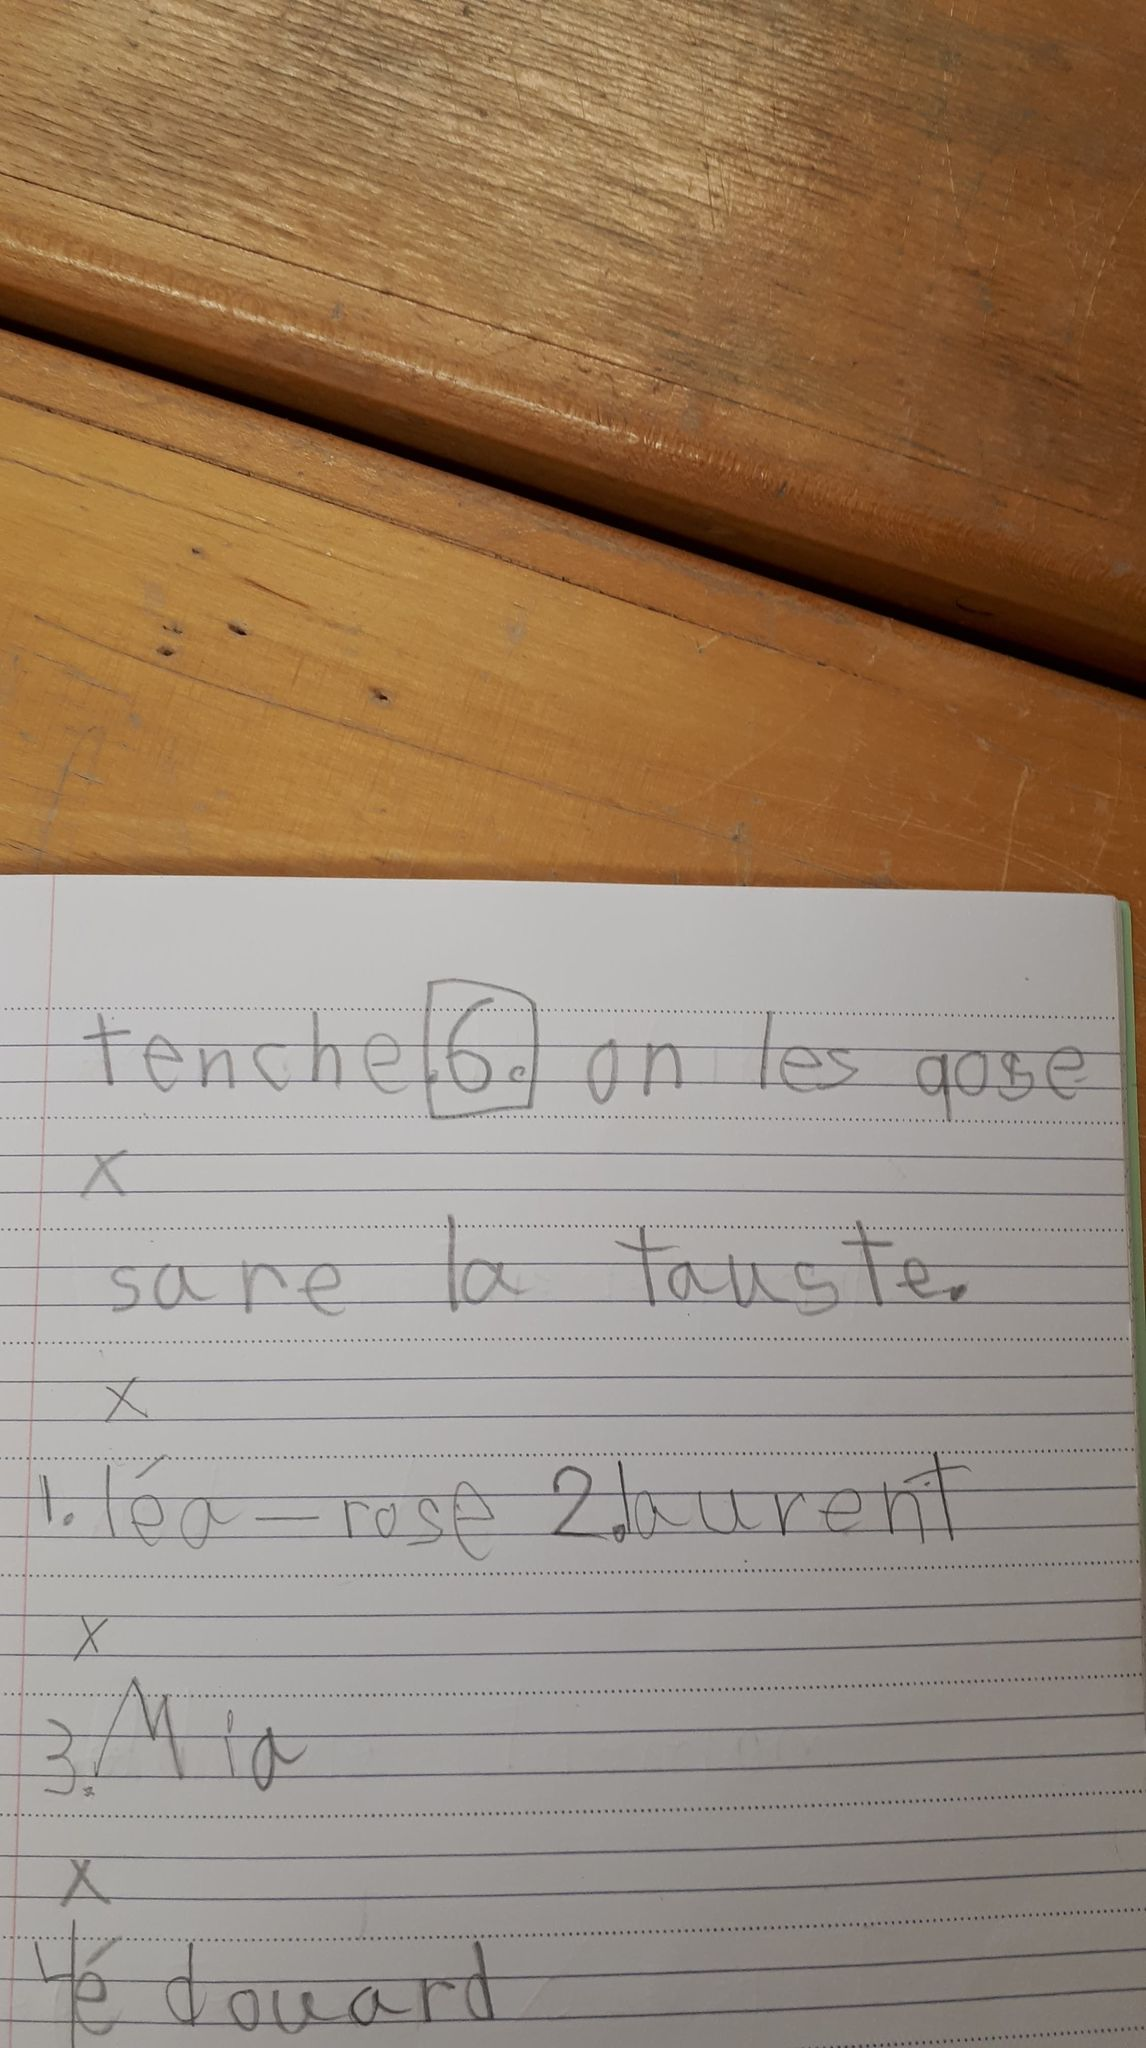 tenche.6. on les qose
x
sare la tauste.
x
1. léa-rose 2. laurent
x
3. Mia
x
4 édouard